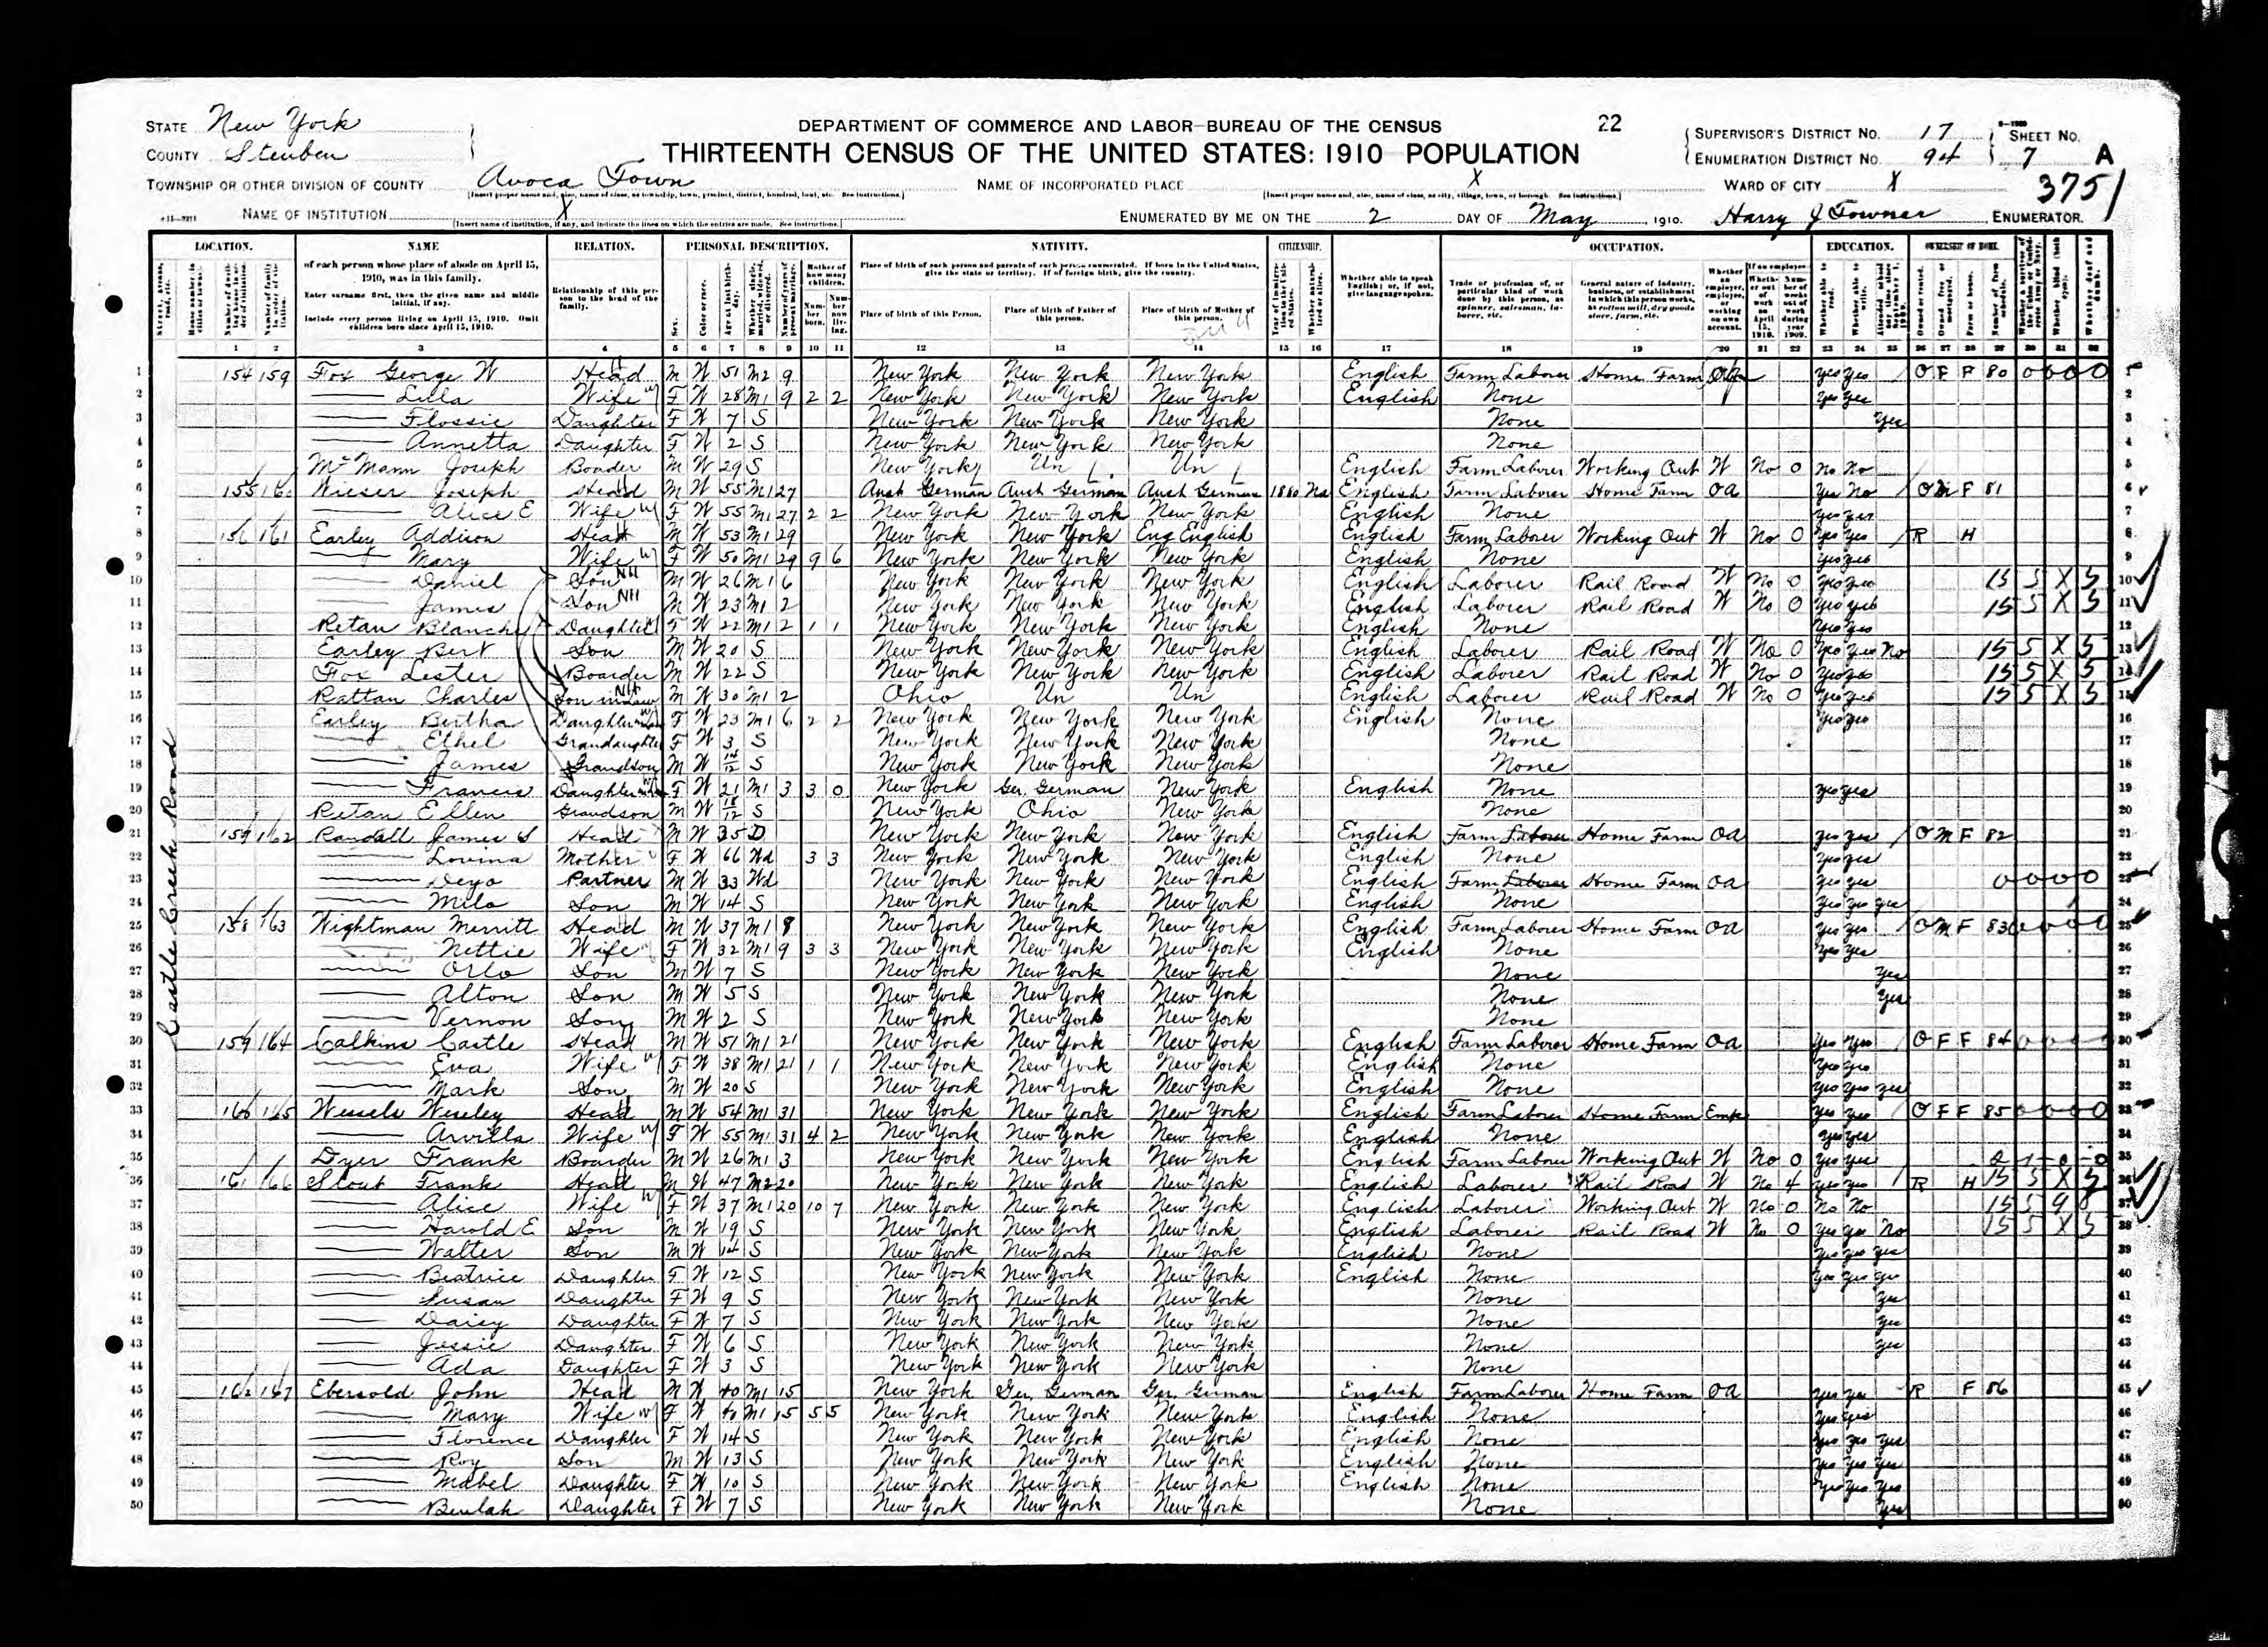 STATE New York
COUNTY Steuben
TOWNSHIP OR OTHER DIVISION OF COUNTY Avoca Town
[Insert proper name and, also, name of class, as township, town, precinct, district, hundred, beat, etc. See instructions.]
NAME OF INSTITUTION X
[Insert name of institution, if any, and indicate the lines on which the entries are made. See instructions.]
DEPARTMENT OF COMMERCE AND LABOR-BUREAU OF THE CENSUS
22
THIRTEENTH CENSUS OF THE UNITED STATES: 1910 POPULATION
NAME OF INCORPORATED PLACE X
[Insert proper name and, also, name of class, as city, village, town, or borough. See instructions.]
ENUMERATED BY ME ON THE 2 DAY OF May 1910. Harry J Towner ENUMERATOR.
SUPERVISOR'S DISTRICT NO. 17
ENUMERATION DISTRICT NO. 94
SHEET NO. 7 A
WARD OF CITY X
3751
LOCATION. NAME RELATION. PERSONAL DESCRIPTION. NATIVITY. CITIZENSHIP. OCCUPATION. EDUCATION. OWNERSHIP OF HOME.
of each person whose place of abode on April 15, 1910, was in this family.
Enter surname first, then the given name and middle initial, if any.
Include every person living on April 15, 1910. Omit children born since April 15, 1910.
Relationship of this person to the head of the family.
Place of birth of each person and parents of each person enumerated. If born in the United States, give the state or territory. If of foreign birth, give the country.
Place of birth of this Person. Place of birth of Father of this person. Place of birth of Mother of this person.
Whether able to speak English; or, if not, give language spoken.
Trade or profession of, or particular kind of work done by this person, as spinner, salesman, laborer, etc.
General nature of industry, business, or establishment in which this person works, as cotton mill, dry goods store, farm, etc.
Castle Creek Road
1 154 159 Fox George W Head M W 51 M2 9 New York New York New York English Farm Laborer Home Farm yes yes O F F 80
2 Lula Wife F W 28 M1 9 2 2 New York New York New York English None yes yes
3 Flossie Daughter F W 7 S New York New York New York None Yes
4 Annetta Daughter F W 2 S New York New York New York None
5 McMann Joseph Boader M W 29 S New York Un Un English Farm Laborer Working Out W No 0 No No
6 155 160 Wieser Joseph Head M W 55 M1 27 Aust German Aust German Aust German 1880 Na English Farm Laborer Home Farm OA Yes No O M F 81
7 Alice E Wife F W 55 M1 27 2 2 New York New York New York English None yes yes
8 156 161 Earley Addison Head M W 53 M1 29 New York New York Eng English English Farm Laborer Working Out W No 0 yes yes R H
9 Mary Wife F W 50 M1 29 9 6 New York New York New York English None yes yes
10 Daniel Son NH M W 26 M1 6 New York New York New York English Laborer Rail Road W No 0 yes yes 15 5 X 5
11 James Son NH M W 23 M1 2 New York New York New York English Laborer Rail Road W No 0 yes yes 15 5 X 5
12 Retan Blanche Daughter F W 22 M1 2 1 1 New York New York New York English None yes yes
13 Earley Bert Son M W 20 S New York New York New York English Laborer Rail Road W No 0 yes yes No 15 5 X 5
14 Fox Lester Boarder M W 22 S New York New York New York English Laborer Rail Road W No 0 yes yes 15 5 X 5
15 Rattan Charles Son in law NH M W 30 M1 2 Ohio Un Un English Laborer Rail Road W No 0 yes yes 15 5 X 5
16 Earley Bertha Daughter in law F W 23 M1 6 2 2 New York New York New York English None yes yes
17 Ethel Grandaughter F W 3 S New York New York New York None
18 James Grandson M W 14/12 S New York New York New York None
19 Francis Daughter in law F W 21 M1 3 3 0 New York Ger. German New York English None yes yes
20 Retan Ellen Grandson M W 18/12 S New York Ohio New York None
21 157 162 Randall James S Head M W 35 D New York New York New York English Farm Laborer Home Farm OA yes yes O M F 82
22 Lovina Mother F W 66 Wd 3 3 New York New York New York English None yes yes
23 Deyo Partner M W 33 Wd New York New York New York English Farm Laborer Home Farm OA yes yes
24 Milo Son M W 14 S New York New York New York English None yes yes yes
25 158 163 Wightman Merritt Head M W 37 M1 8 New York New York New York English Farm Laborer Home Farm OA yes yes O M F 83
26 Nettie Wife F W 32 M1 9 3 3 New York New York New York English None yes yes
27 Orlo Son M W 7 S New York New York New York None Yes
28 Alton Son M W 5 S New York New York New York None Yes
29 Vernon Son M W 2 S New York New York New York None
30 159 164 Calkins Castle Head M W 51 M1 21 New York New York New York English Farm Laborer Home Farm OA yes yes O F F 84
31 Eva Wife F W 38 M1 21 1 1 New York New York New York English None yes yes
32 Mark Son M W 20 S New York New York New York English None yes yes yes
33 160 165 Wessels Wessley Head M W 54 M1 31 New York New York New York English Farm Laborer Home Farm Emp yes yes O F F 85
34 Arvilla Wife F W 55 M1 31 4 2 New York New York New York English None yes yes
35 Dyer Frank Boarder M W 26 M1 3 New York New York New York English Farm Laborer Working Out W No 0 yes yes
36 161 166 Stout Frank Head M W 47 M2 20 New York New York New York English Laborer Rail Road W No 4 yes yes R H 15 5 X 5
37 Alice Wife F W 37 M1 20 10 7 New York New York New York English Laborer Working Out W No 0 No No
38 Harold E Son M W 19 S New York New York New York English Laborer Rail Road W No 0 yes yes No 15 5 X 5
39 Walter Son M W 14 S New York New York New York English None yes yes yes
40 Beatrice Daughter F W 12 S New York New York New York English None yes yes yes
41 Susan Daughter F W 9 S New York New York New York None yes
42 Daisy Daughter F W 7 S New York New York New York None yes
43 Jessie Daughter F W 6 S New York New York New York None yes
44 Ada Daughter F W 3 S New York New York New York None
45 162 167 Ebersold John Head M W 40 M1 15 New York Ger. German Ger. German English Farm Laborer Home Farm OA yes yes R F 86
46 Mary Wife F W 40 M1 15 5 5 New York New York New York English None yes yes
47 Florence Daughter F W 14 S New York New York New York English None yes yes yes
48 Roy Son M W 13 S New York New York New York English None yes yes yes
49 Mabel Daughter F W 10 S New York New York New York English None yes yes yes
50 Beulah Daughter F W 7 S New York New York New York None Yes